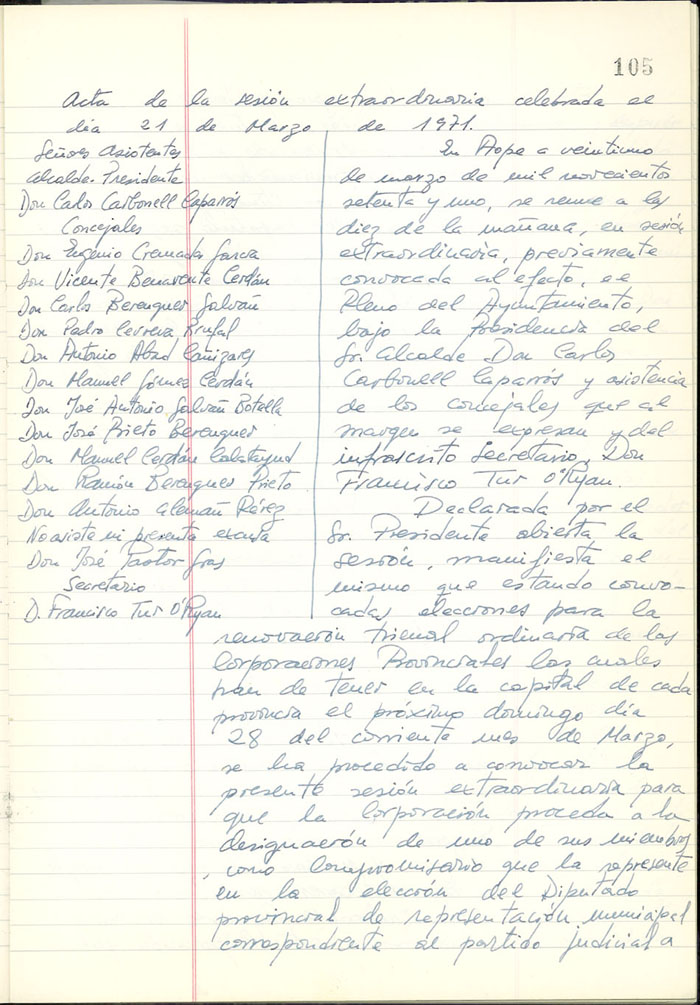 105
Acta de la sesión extraordinaria celebrada el
día 21 de Marzo, de 1971.
Señores Asistentes
Alcalde-Presidente
Don Carlos Carbonell Caparrós
Concejales
Don Eugenio Cremades García
Don Vicente Benavente Cerdán
Don Carlos Berenguer Galván
Don Pedro Cervera Brufal
Don Antonio Abad Cañizares
Don Manuel Gómez Cerdán
Don José Antonio Galván Botella
Don José Prieto Berenguer
Don Manuel Cerdán Calatayud
Don Ramón Berenguer Prieto
Don Antonio Alemañ Pérez
No asiste ni presenta excusa
Don José Pastor Gras
Secretario
D. Francisco Tur O'Ryan
En Aspe a veintiuno
de marzo de mil novecientos
setenta y uno, se reune a las
diez de la mañana, en sesión
extraordinaria, previamente
convocada al efecto, el
Pleno del Ayuntamiento,
bajo la Presidencia del
Sr. Alcalde Don Carlos
Carbonell Caparrós y asistencia
de los concejales que al
margen se expresan y del
infrascrito Secretario, Don
Francisco Tur O'Ryan.
Declarada por el
Sr. Presidente abierta la
sesión, manifiesta el
mismo que estando convo-
cadas elecciones para la
renovación trienal ordinaria de las
Corporaciones Provinciales las cuales
han de tener en la capital de cada
provincia el próximo domingo día
28 del corriente mes de Marzo,
se ha procedido a convocar la
presente sesión extraordinaria para
que la Corporación proceda a la
designación de uno de sus miembros
, como Compromisario que la represente
en la elección del Diputado
provincial de representación municipal
correspondiente al partido judicial a